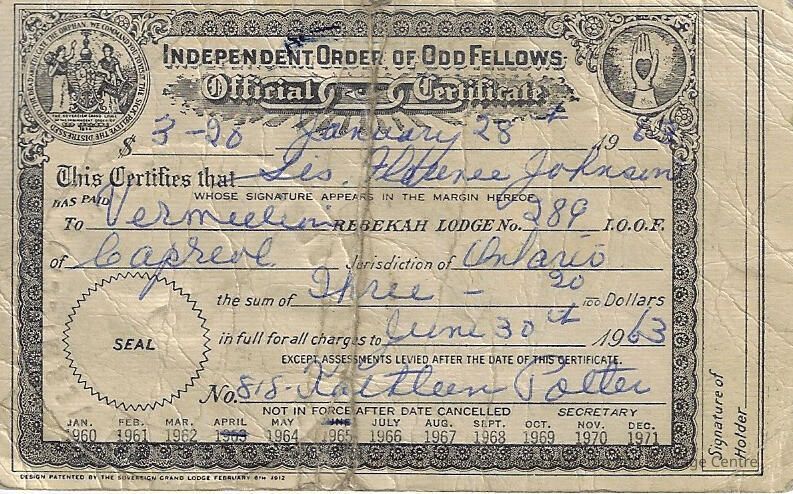 INDEPENDENT ORDER OF ODD FELLOWS
Official Certificate
$ 3-20 January 28th 19 63
This Certifies that Sis. Florence Johnson
WHOSE SIGNATURE APPEARS IN THE MARGIN HEREOF
HAS PAID
To Vermilion REBEKAH LODGE No. 289 I.O.O.F.
of Capreol Jurisdiction of Ontario
the sum of Three - 20/100 Dollars
in full for all charges to June 30th 1963
EXCEPT ASSESSMENTS LEVIED AFTER THE DATE OF THIS CERTIFICATE.
SEAL
No. 818- Kathleen Potter
NOT IN FORCE AFTER DATE CANCELLED SECRETARY
JAN. FEB. MAR. APRIL MAY JUNE JULY AUG. SEPT. OCT. NOV. DEC.
1960 1961 1962 1963 1964 1965 1966 1967 1968 1969 1970 1971
DESIGN PATENTED BY THE SOVEREIGN GRAND LODGE FEBRUARY 6TH 1912
Signature of
Holder
Centre